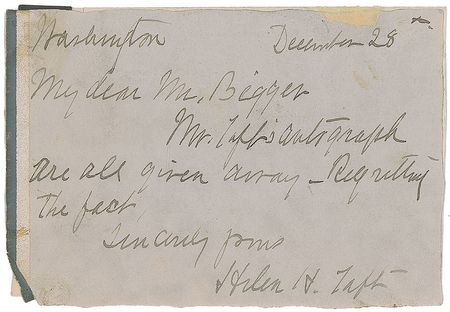 Washington December 28th
My dear Mr. Bigger
Mr. Taft's autograph
are all given away - Regretting
the fact,
Sincerely yours
Helen H. Taft